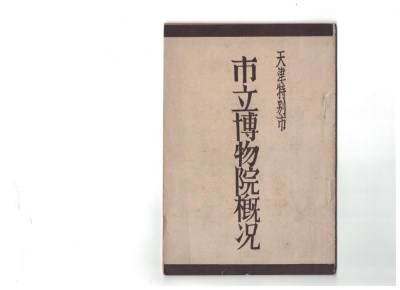 天津特别市
市立博物院概况